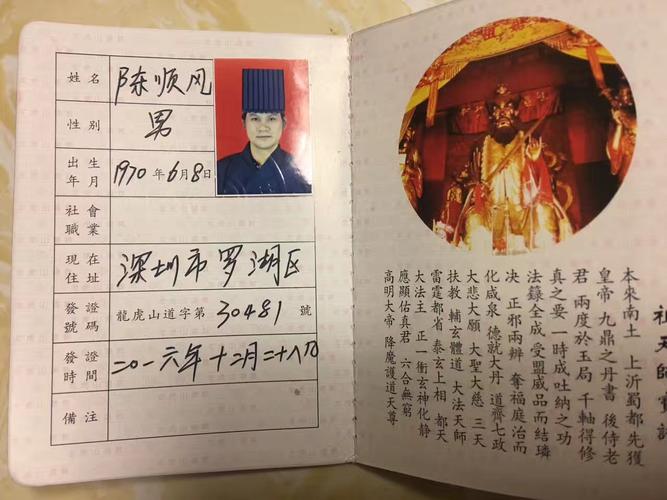 姓名 陈顺风
性别 男
出生年月 1970年6月8日
社會職業
現在住址 深圳市罗湖区
發證號碼 龍虎山道字第30481號
發證時間 二〇一六年十二月二十八日
備注
祖天師寶誥
本來南土 上沂蜀都 先獲
皇帝 九鼎之丹書 後侍老
君 兩度於玉局 千軸得修
真之要 一時成吐納之功
法籙全成 受盟威品而結璘
決 正邪兩辨 奪福庭治而
化咸泉 德就大丹 道齊七政
大悲大願 大聖大慈 三天
扶教 輔玄體道 大法天師
雷霆都省 泰玄上相 都天
大法主 正一衝玄神化靜
應顯佑真君 六合無窮
高明大帝 降魔護道天尊